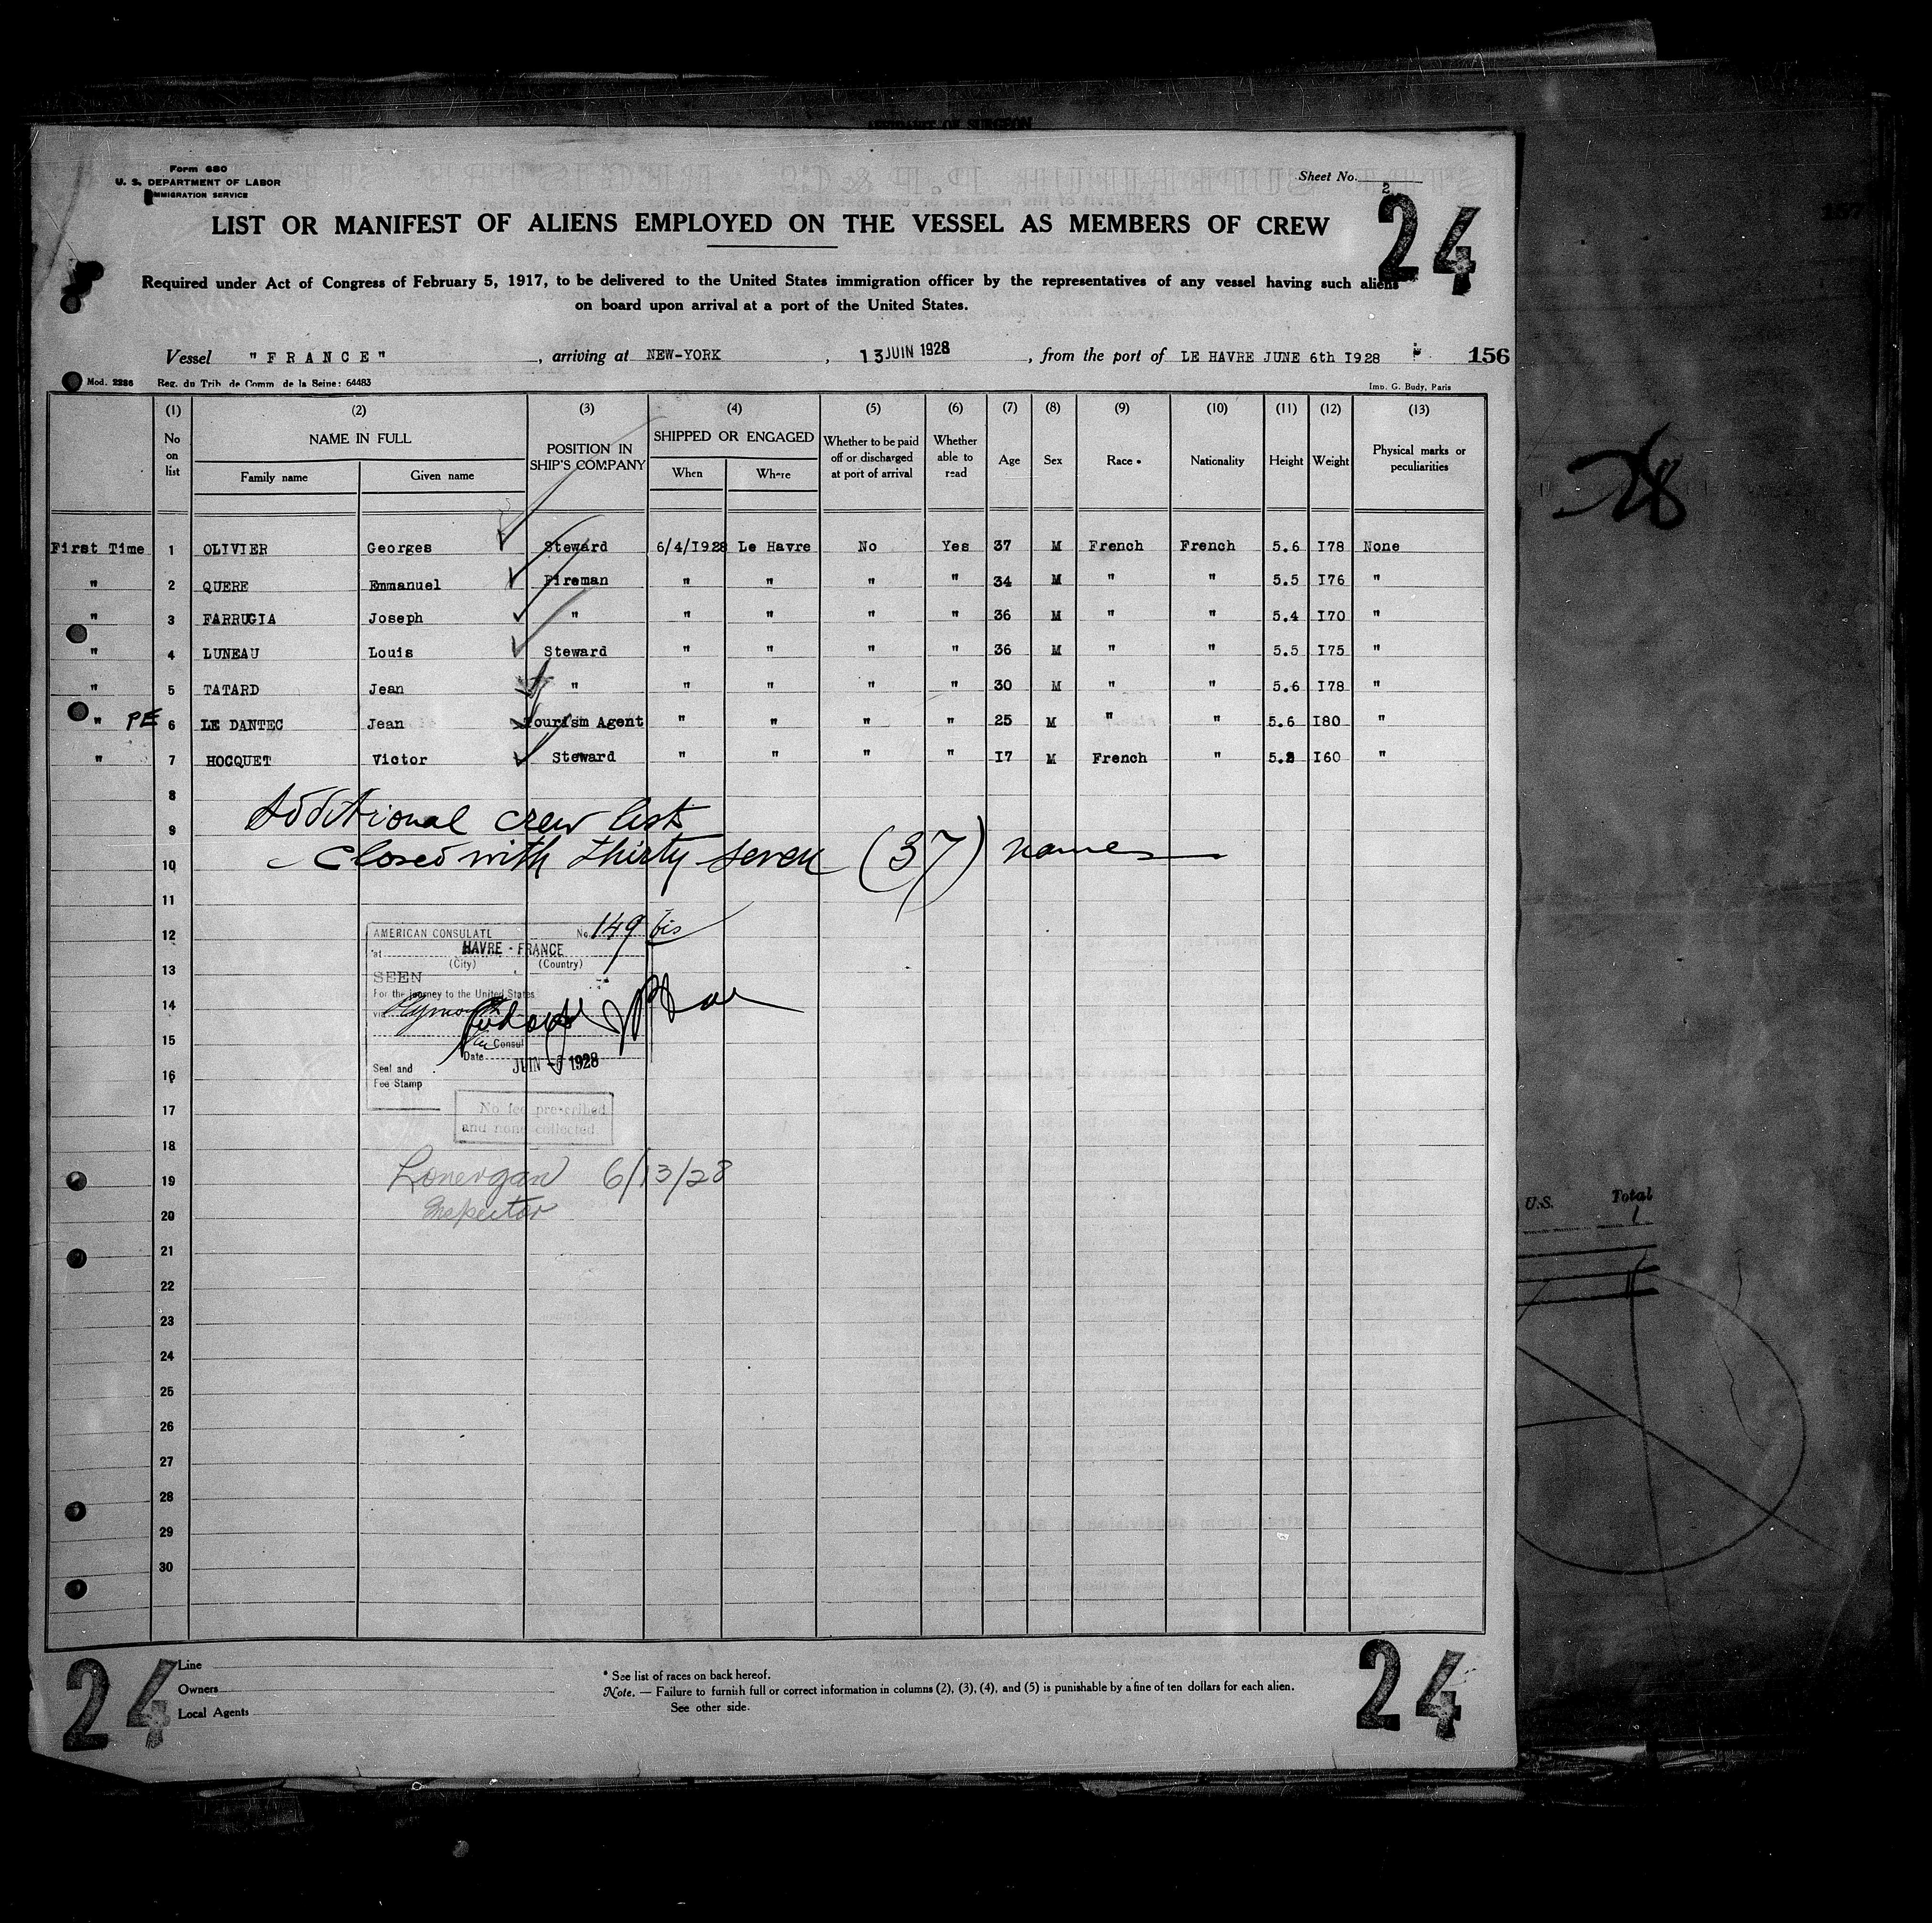 AFFIDAVIT OF SURGEON
Form 680
U. S. DEPARTMENT OF LABOR
IMMIGRATION SERVICE
Sheet No. 2
24
LIST OR MANIFEST OF ALIENS EMPLOYED ON THE VESSEL AS MEMBERS OF CREW
Required under Act of Congress of February 5, 1917, to be delivered to the United States immigration officer by the representatives of any vessel having such aliens
on board upon arrival at a port of the United States.
Vessel "FRANCE", arriving at NEW-YORK, 13 JUIN 1928, from the port of LE HAVRE JUNE 6th I928 156
Mod. 2286 Reg. du Trib. de Comm. de la Seine: 64483 Imp. G. Budy, Paris
(1) (2) (3) (4) (5) (6) (7) (8) (9) (10) (11) (12) (13)
No on list NAME IN FULL Family name Given name POSITION IN SHIP'S COMPANY SHIPPED OR ENGAGED When Where Whether to be paid off or discharged at port of arrival Whether able to read Age Sex Race * Nationality Height Weight Physical marks or peculiarities
First Time 1 OLIVIER Georges Steward 6/4/I928 Le Havre No Yes 37 M French French 5.6 I78 None
" 2 QUERE Emmanuel Fireman " " " " 34 M " " 5.5 I76 "
" 3 FARRUGIA Joseph " " " " " 36 M " " 5.4 I70 "
" 4 LUNEAU Louis Steward " " " " 36 M " " 5.5 I75 "
" 5 TATARD Jean " " " " " 30 M " " 5.6 I78 "
" PE 6 LE DANTEC Jean Tourism Agent " " " " 25 M " " 5.6 I80 "
" 7 HOCQUET Victor Steward " " " " I7 M French " 5.2 I60 "
8
Additional crew list
9
closed with thirty seven (37) names
10
11
12
AMERICAN CONSULATE No. 149 bis
at HAVRE - FRANCE
(City) (Country)
13
SEEN
For the journey to the United States
14
via Plymouth
15
Vice Consul
Date JUIN -6 1928
Seal and
Fee Stamp
16
17
No fee prescribed
and none collected
18
19
Lonergan 6/13/28
Inspector
20
21
22
23
24
25
26
27
28
29
30
U.S. Total
1
24
Line
Owners
Local Agents
* See list of races on back hereof.
Note. — Failure to furnish full or correct information in columns (2), (3), (4), and (5) is punishable by a fine of ten dollars for each alien.
See other side.
24
157